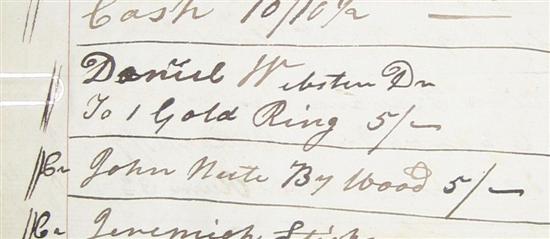 Cash 10/10½
Daniel Webster Dr
To 1 Gold Ring 5/-
Cr John Nute By Wood 5/-
Cr Jeremiah